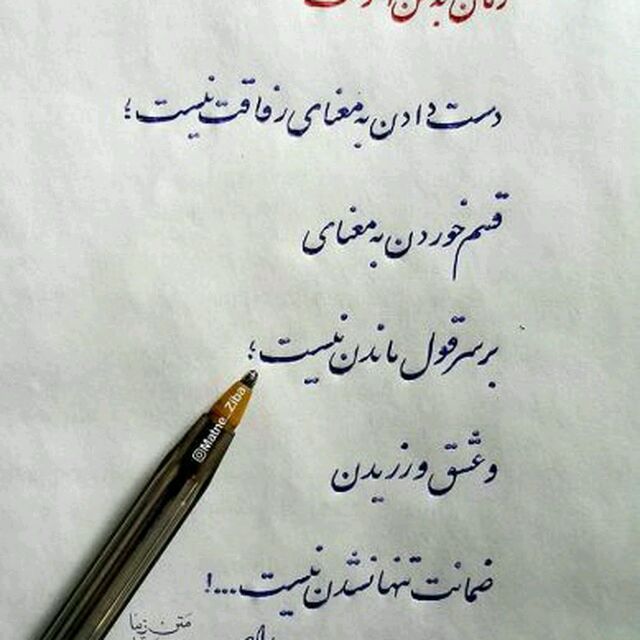 دست دادن به معنای رفاقت نیست؛
قسم خوردن به معنای
بر سر قول ماندن نیست؛
و عشق ورزیدن
ضمانت تنها نشدن نیست...!
@Matne_Ziba
متن زیبا